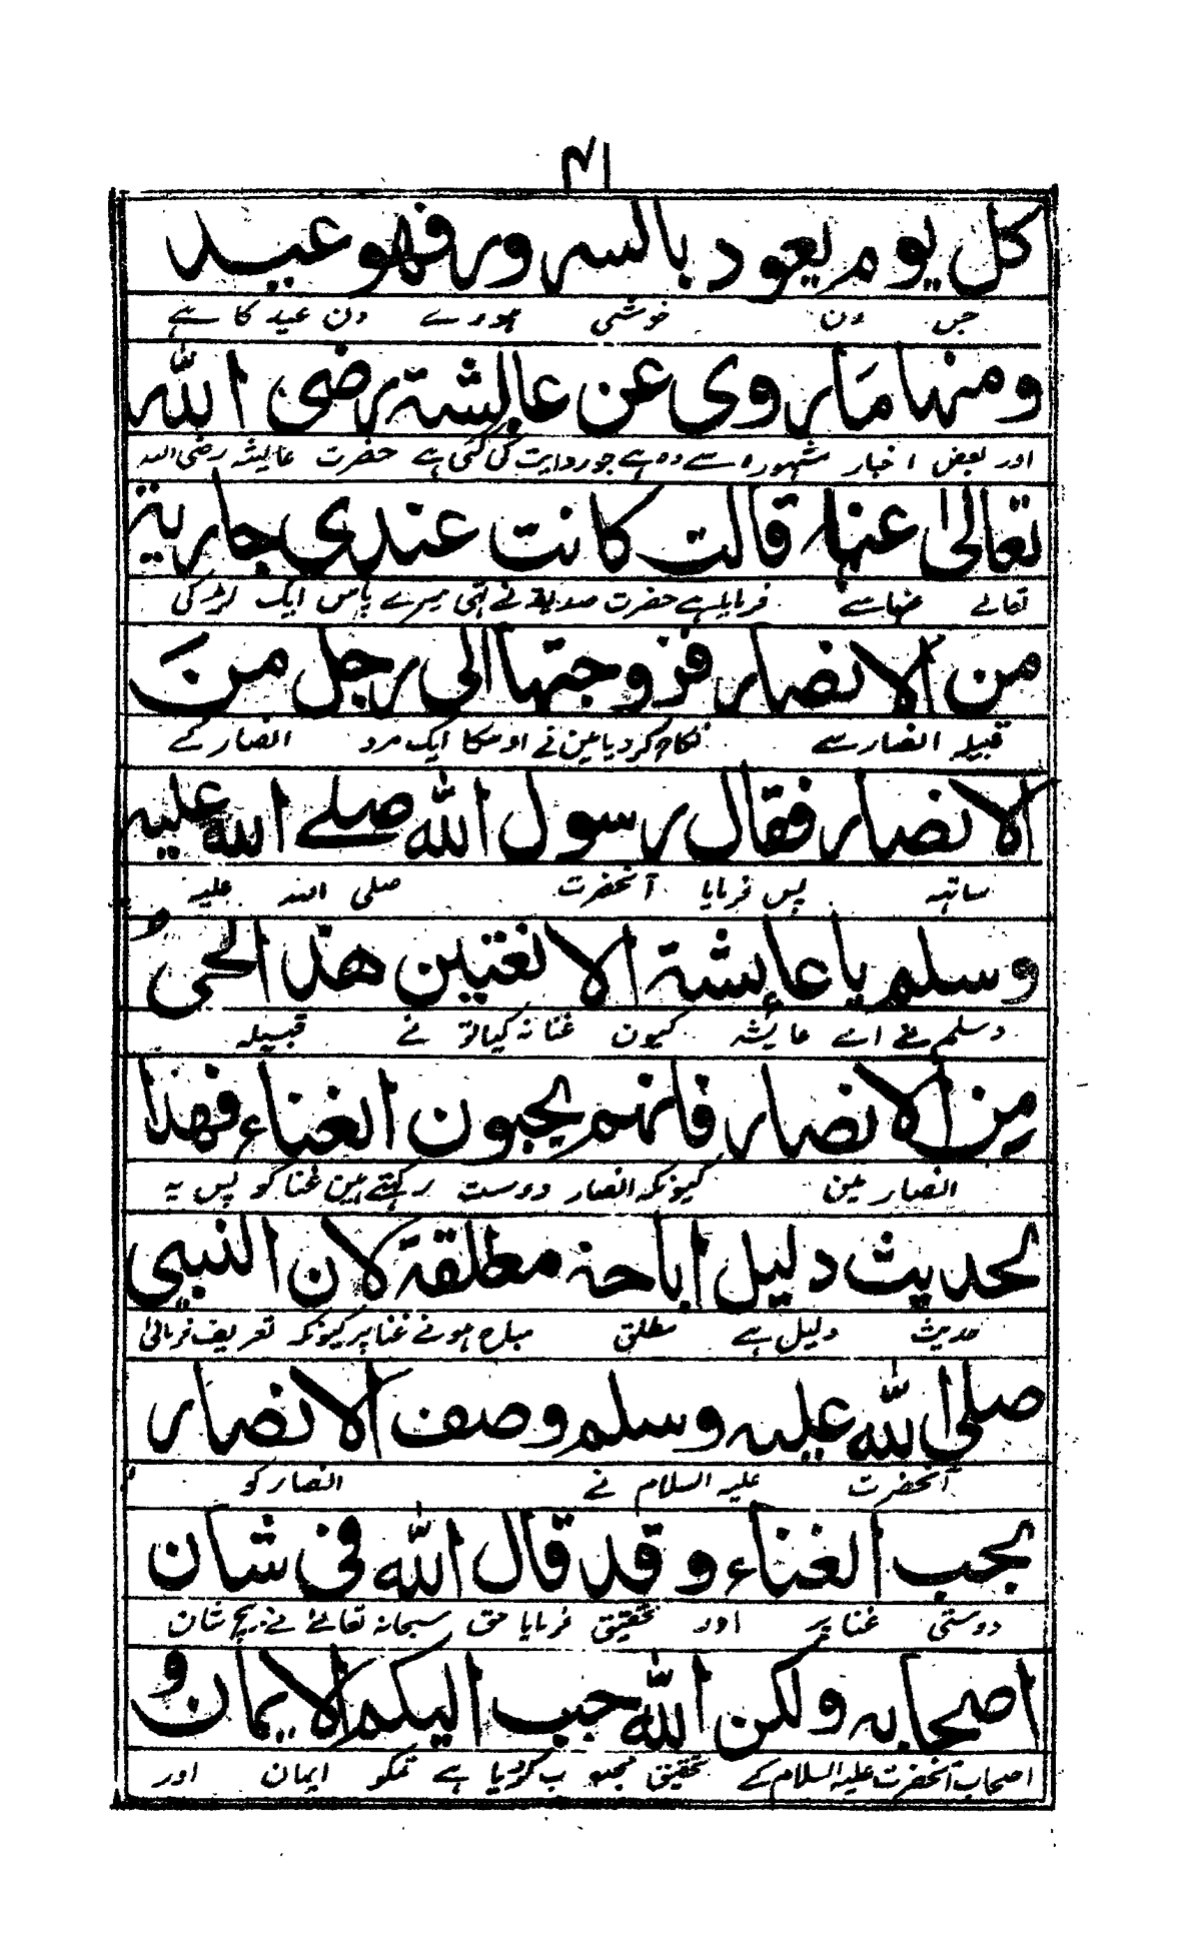 ۴۱
كل يوم يعود بالسرور فهو عيد
جس دن خوشی ہووے دن عید کا ہے
ومنها ما روى عن عايشة رضى الله
اور بعض اخبار مشہورہ سے وہ ہے جو روایت کی گئی ہے حضرت عایشہ رضی اللہ
تعالى عنها قالت كانت عندى جارية
تعالے عنہا سے فرمایا ہے حضرت صدیقہ نے تہی میرے پاس ایک لڑکی
من الانصار فزوجتها الى رجل من
قبیلہ انصار سے نکاح کر دیا مین نے اوسکا ایک مرد انصار کے
الانصار فقال رسول الله صلے الله عليه
ساتہہ پس فرمایا آنحضرت صلی اللہ علیہ
وسلم يا عايشة الا تغنين هذا الحى
وسلم نے اے عایشہ کیون غنا نہ کیا تو نے قبیلہ
من الانصار فانهم يحبون الغناء فهذا
انصار مین کیونکہ انصار دوست رکہتے ہین غنا کو پس یہ
لحديث دليل اباحة مطلقة لان النبي
حدیث دلیل ہے مطلق مباح ہونے غنا پر کیونکہ تعریف فرمائی
صلى الله عليه وسلم وصف الانصار
آنحضرت علیہ السلام نے انصار کو
بحب الغناء وقد قال الله فى شان
دوستی غنا پر اور تحقیق فرمایا حق سبحانہ تعالےٰ نے بیچ شان
اصحابه ولكن الله حبب اليكم الايمان و
اصحاب آنحضرت علیہ السلام کے تحقیق محبوب کر دیا ہے تمکو ایمان اور